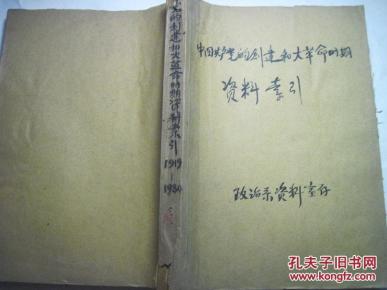 中国共产党的创建和大革命时期
资料索引
政治系资料室存
的创建和大革命时期资料索引
1919
1980
孔夫子旧书网